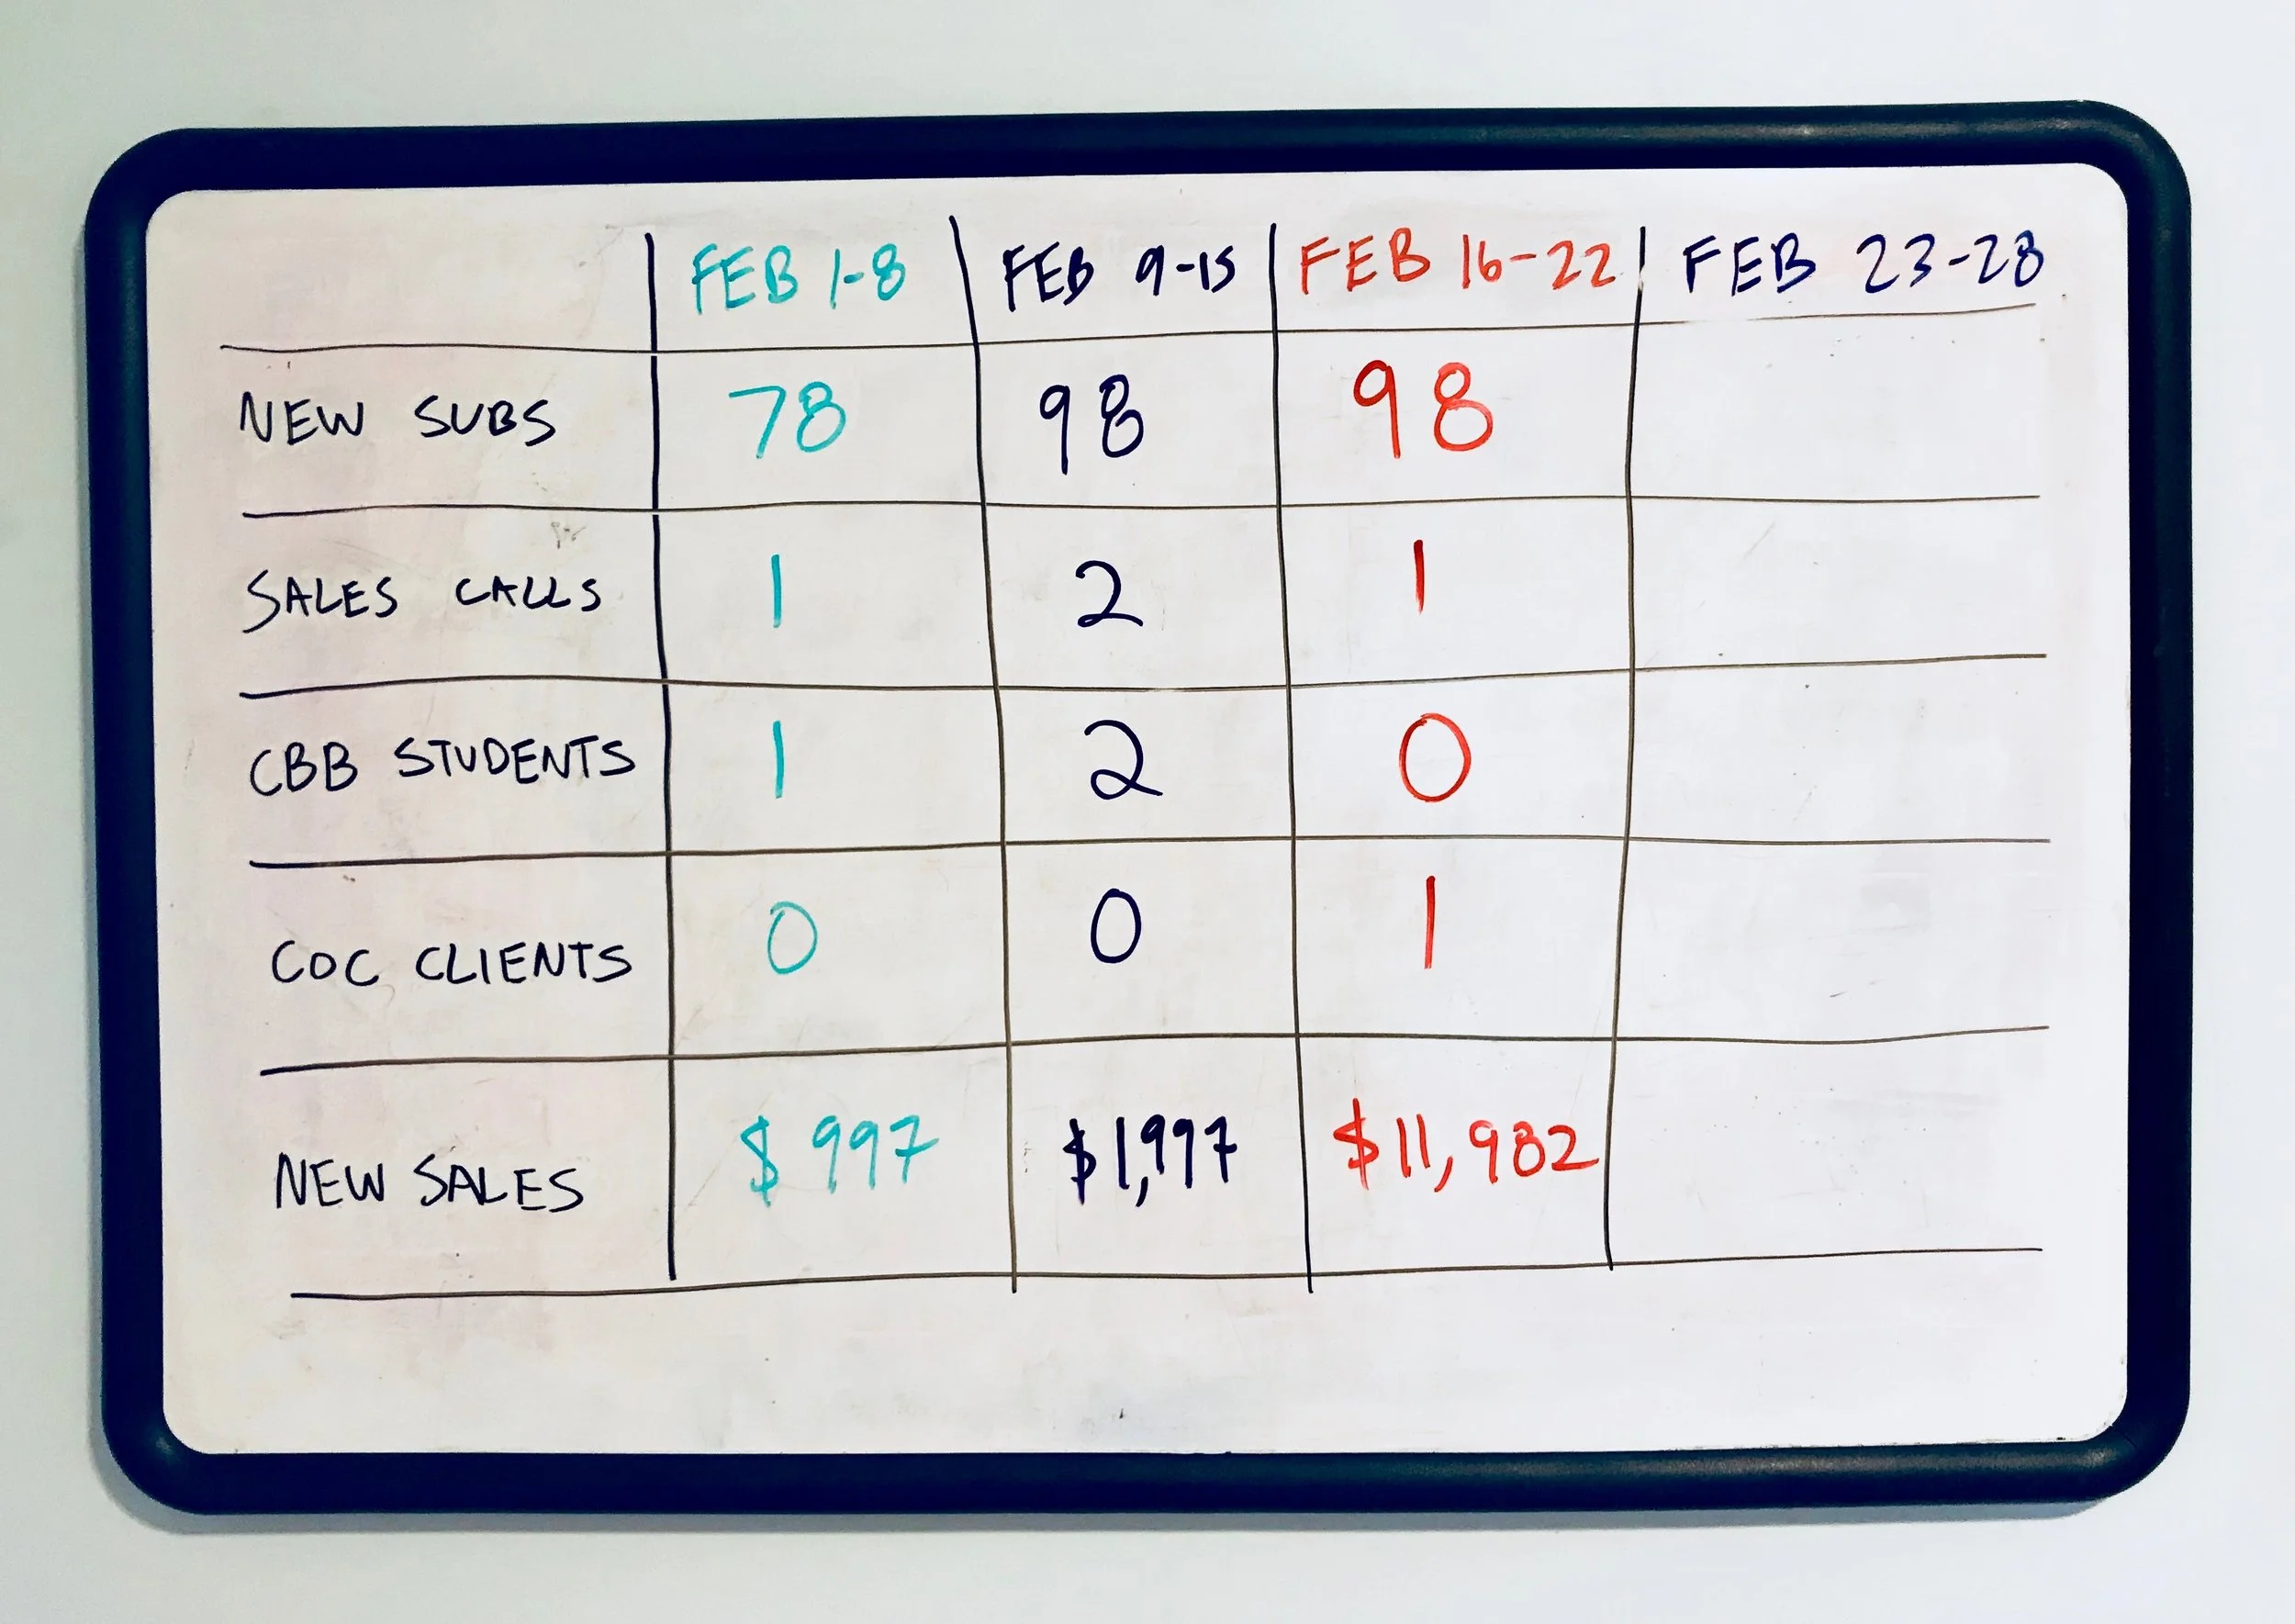 FEB 1-8 FEB 9-15 FEB 16-22 FEB 23-28
NEW SUBS 78 98 98
SALES CALLS 1 2 1
CBB STUDENTS 1 2 0
COC CLIENTS 0 0 1
NEW SALES $997 $1,997 $11,982